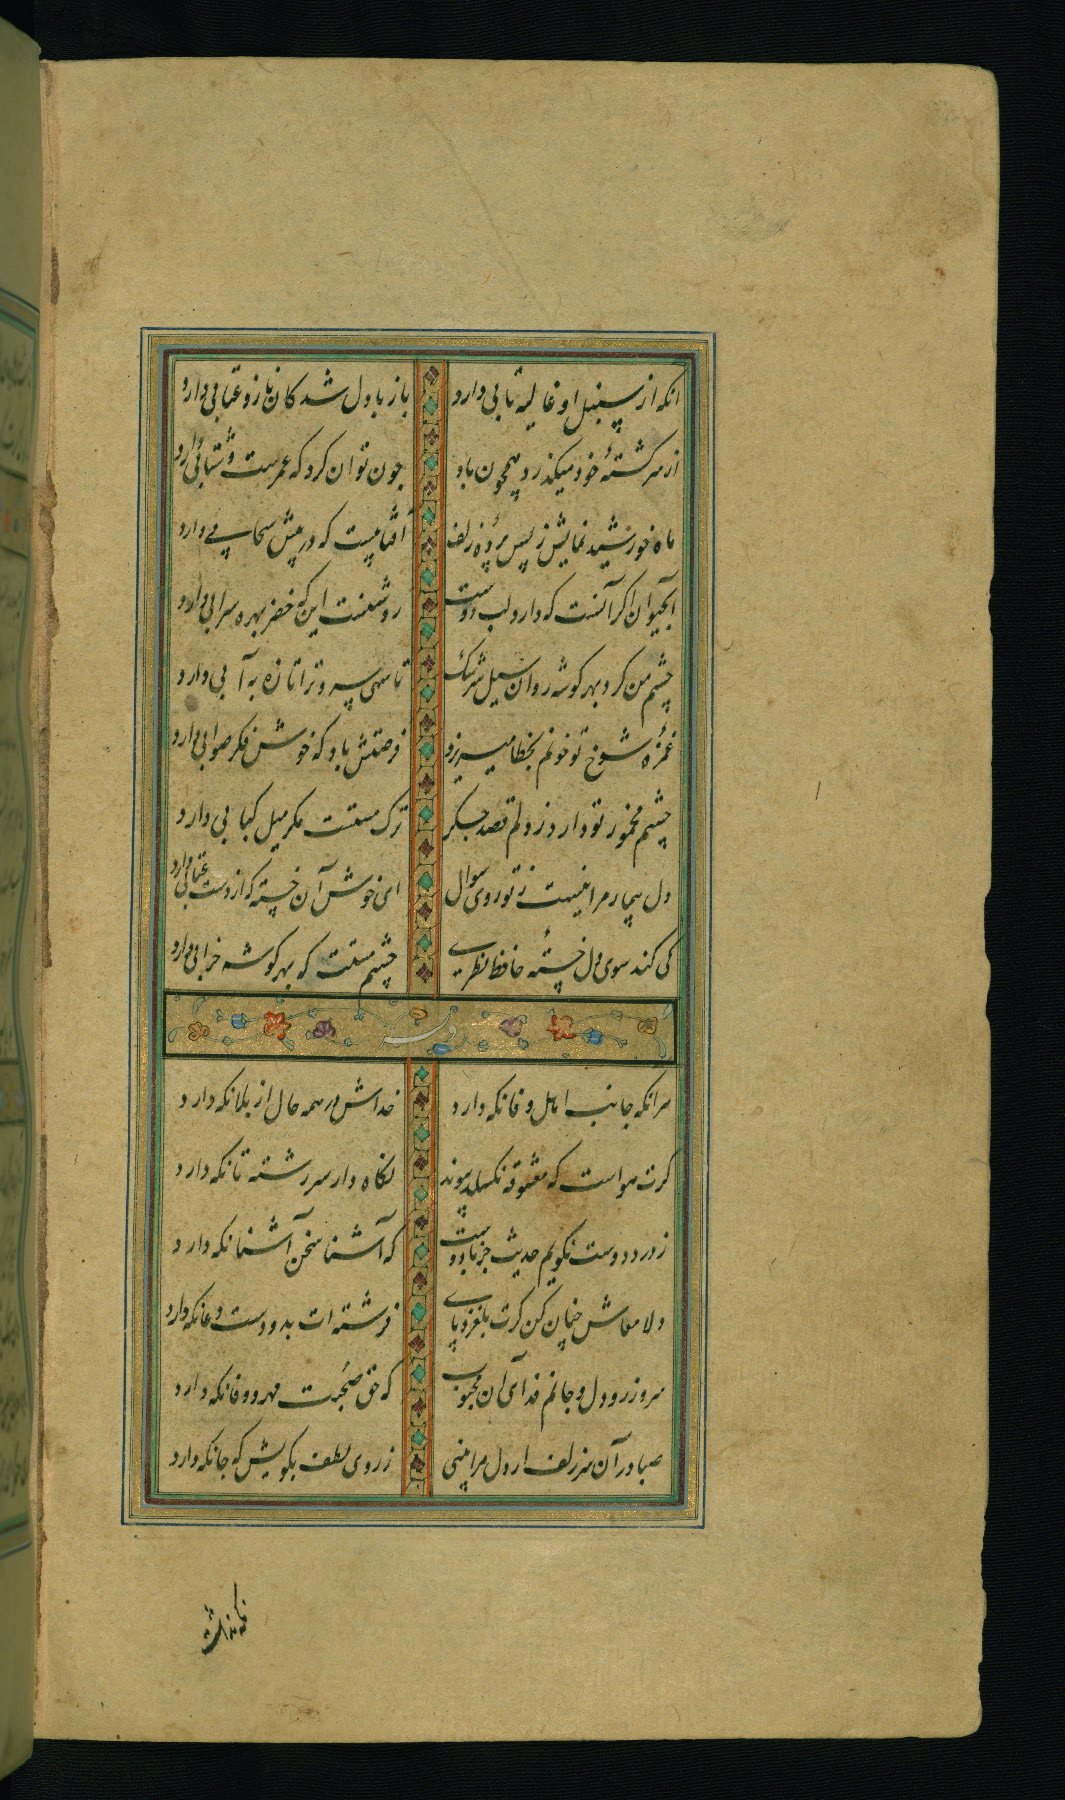 انکه از سنبل او غالیه تابی دارد باز با دل شد کان ناز و عتابی دارد
از سر کشتهٔ خود میکذرد همچون باد چون توان کرد که عمرست و شتابی دارد
ماه خورشید نمایش ز پس پردهٔ زلف آفتابیست که در پیش سحابی دارد
آبحیوان اکر آنست که دارد لب دوست روشنست این که خضر بهره سرابی دارد
چشم من کرد بهر کوشه روان سیل سرشک تا سهی سرو ترا تازه به آبی دارد
غمزه شوخ تو خونم بخطا میریزد فرصتش باد که خوش فکر صوابی دارد
چشم مخمور تو دارد ز دلم قصد جکر ترک مستت مکر میل کبابی دارد
دل بیمار مرا نیست ز تو روی سوال ای خوش آن خسته که از دوست عتابی دارد
کی کند سوی دل خستهٔ حافظ نظری چشم مستت که بهر کوشه خرابی دارد
وله
هرانکه جانب اهل وفا نکه دارد خداش در همه حال از بلا نکه دارد
کرت هواست که معشوقه نکسلد پیوند نکاه دار سر رشته تا نکه دارد
ز درد دوست نکویم حدیث جز با دوست که آشنا سخن آشنا نکه دارد
دلا معاش چنان کن کرت بلغزد پای فرشته ات بدو دست دعا نکه دارد
سر و زر و دل و جانم فدای آن محبوب که حق صحبت مهر و وفا نکه دارد
صبا در آن سر زلف ار دل مرا بینی ز روی لطف بکویش که جا نکه دارد